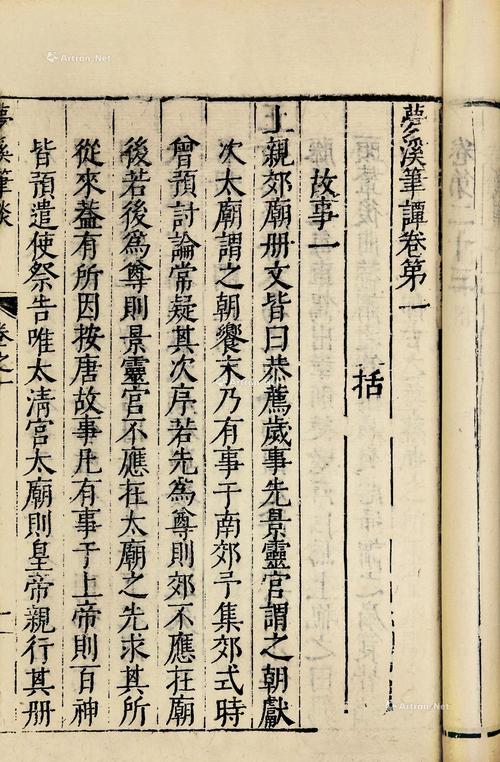 夢溪筆譚卷第一
括
故事一
上親郊廟册文皆曰恭薦歲事先景靈宫謂之朝獻
次太廟謂之朝饗末乃有事于南郊予集郊式時
曾預討論常疑其次序若先為尊則郊不應在廟
後若後為尊則景靈宫不應在太廟之先求其所
從來葢有所因按唐故事凡有事于上帝則百神
皆預遣使祭告唯太清宫太廟則皇帝親行其册
夢溪筆談
卷之一
一
Artron.Net
Artron.Net